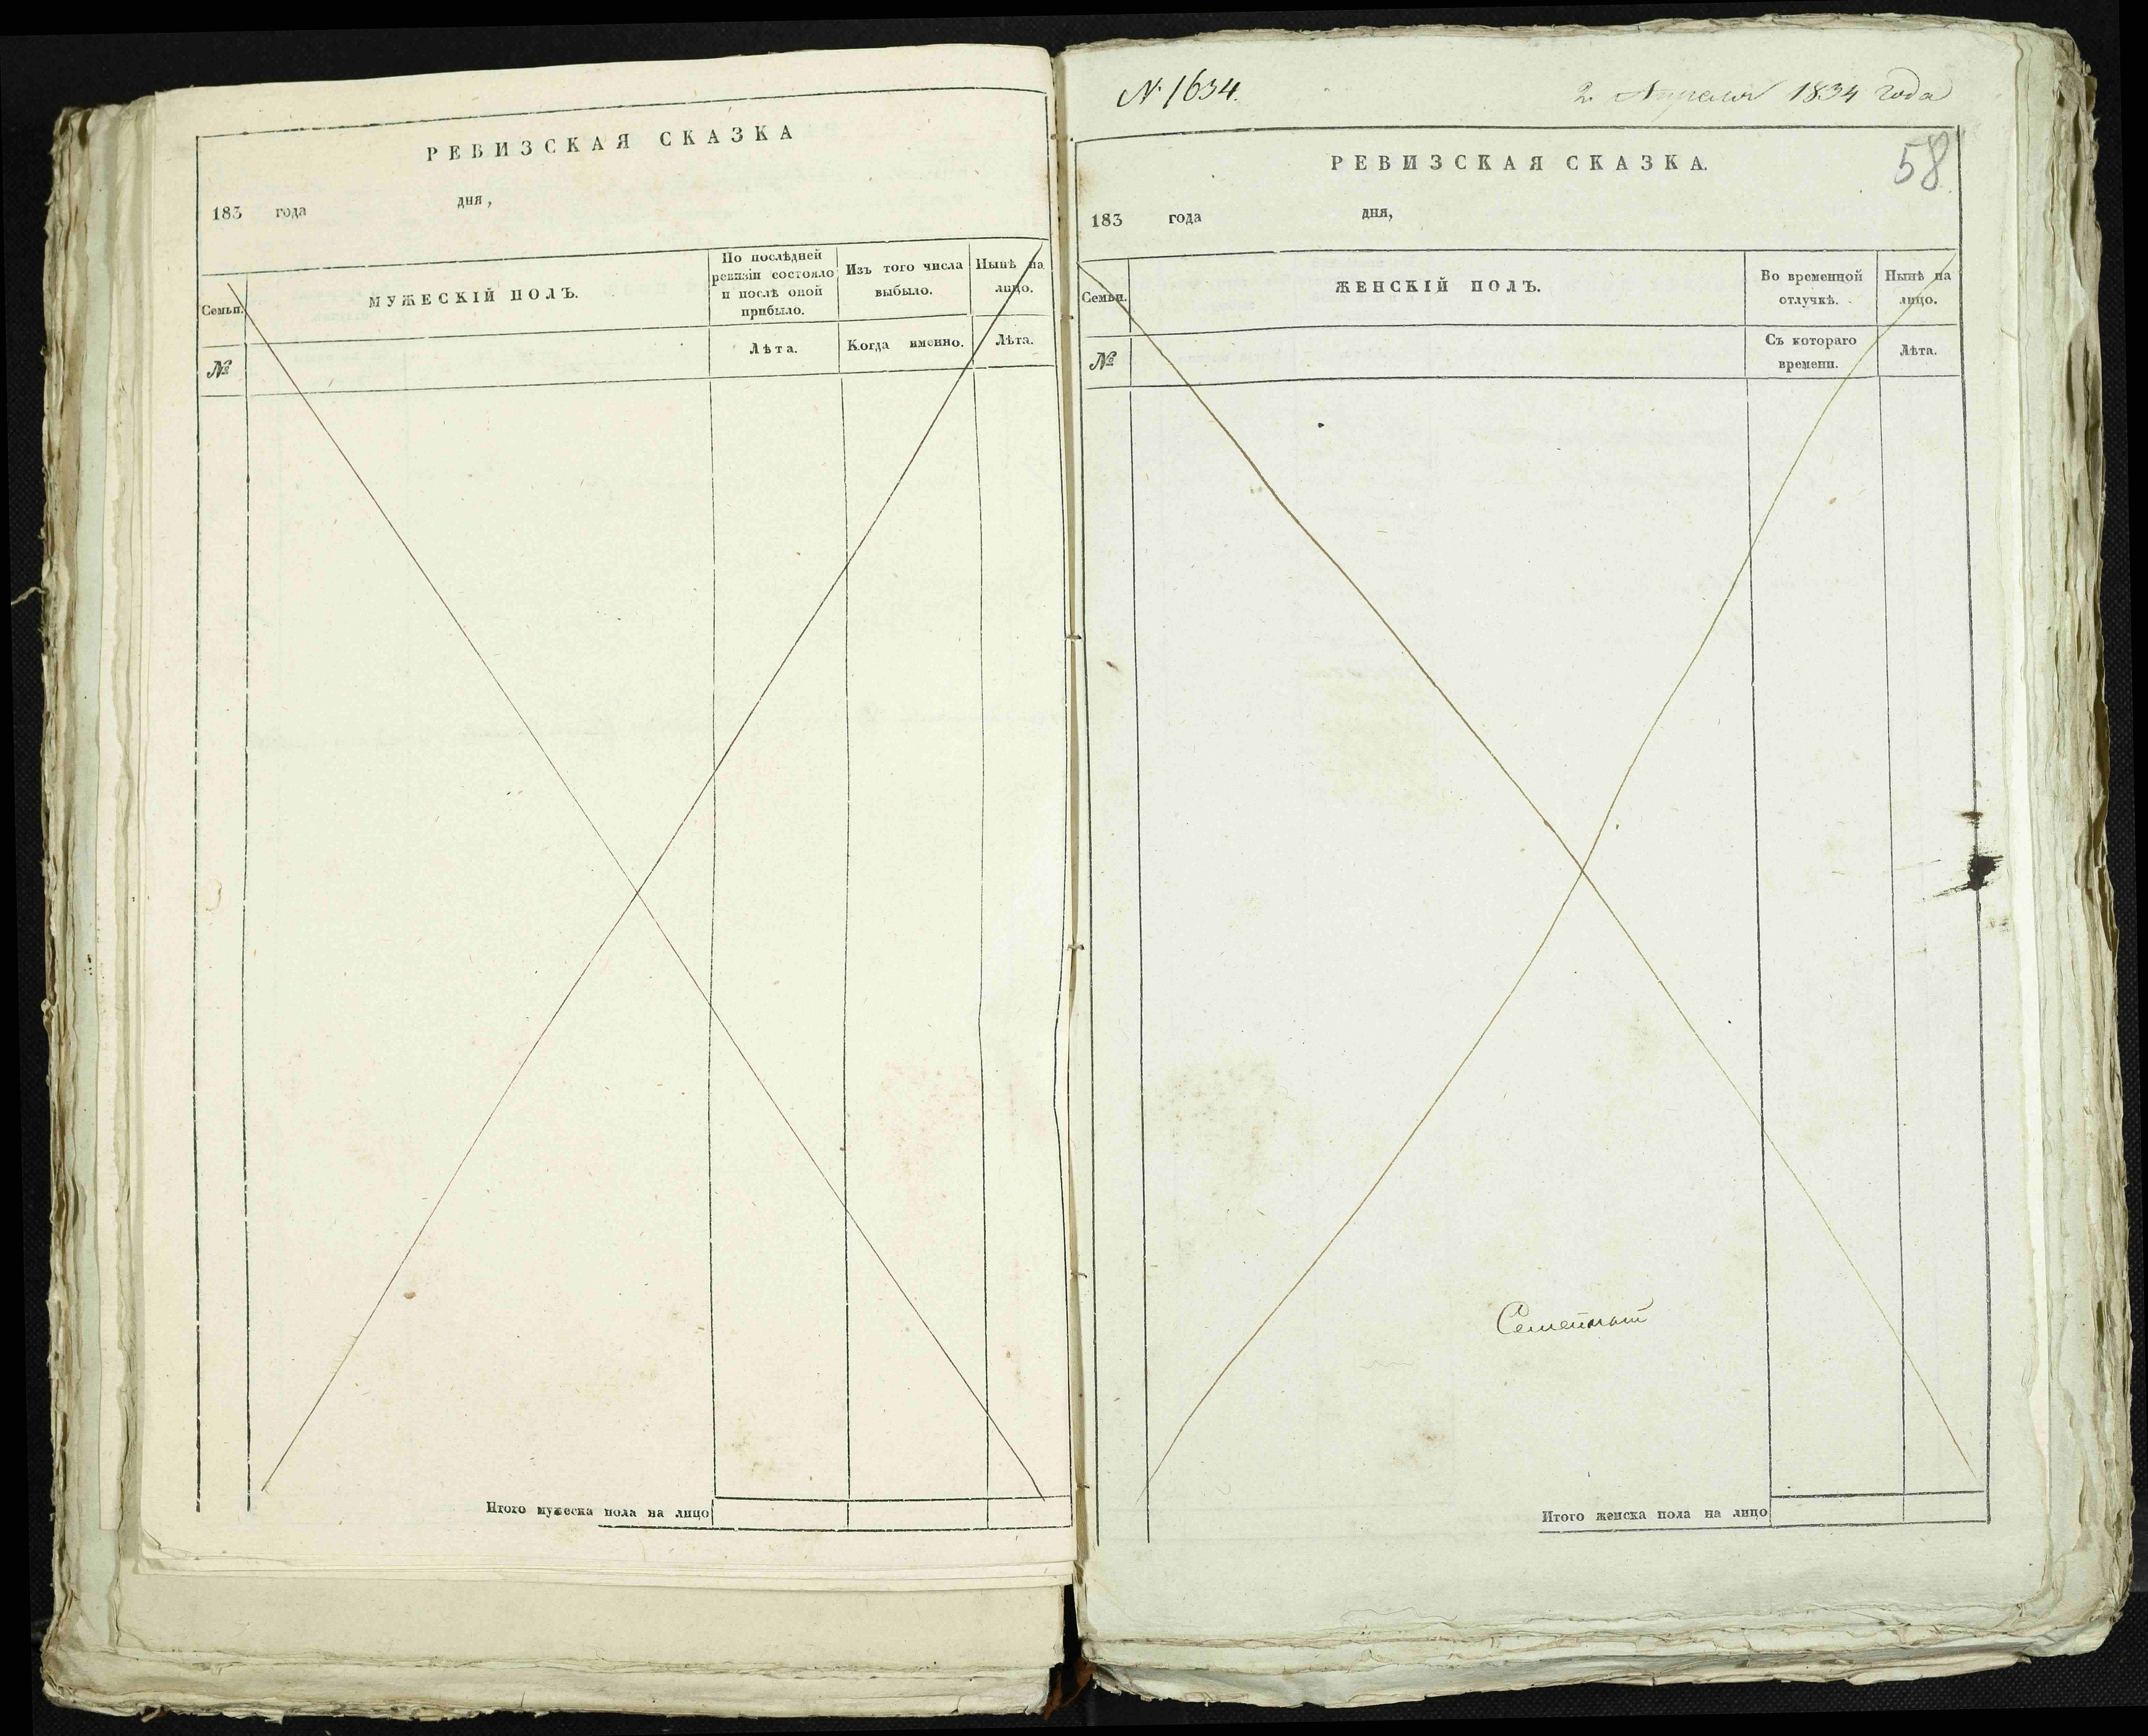 РЕВИЗСКАЯ СКАЗКА
183 года дня,
Семьи.
МУЖЕСКІЙ ПОЛЪ.
По послѣдней ревизіи состояло и послѣ оной прибыло.
Изъ того числа выбыло.
Нынѣ на лицо.
№
Лѣта.
Когда именно.
Лѣта.
Итого мужеска пола на лицо
N 1634.
2 Апреля 1834 года
58
РЕВИЗСКАЯ СКАЗКА.
183 года дня,
Семьи.
ЖЕНСКІЙ ПОЛЪ.
Во временной отлучкѣ.
Нынѣ на лицо.
№
Съ котораго времени.
Лѣта.
Итого женска пола на лицо